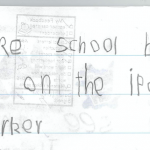 RE school b
on the ipa
rker